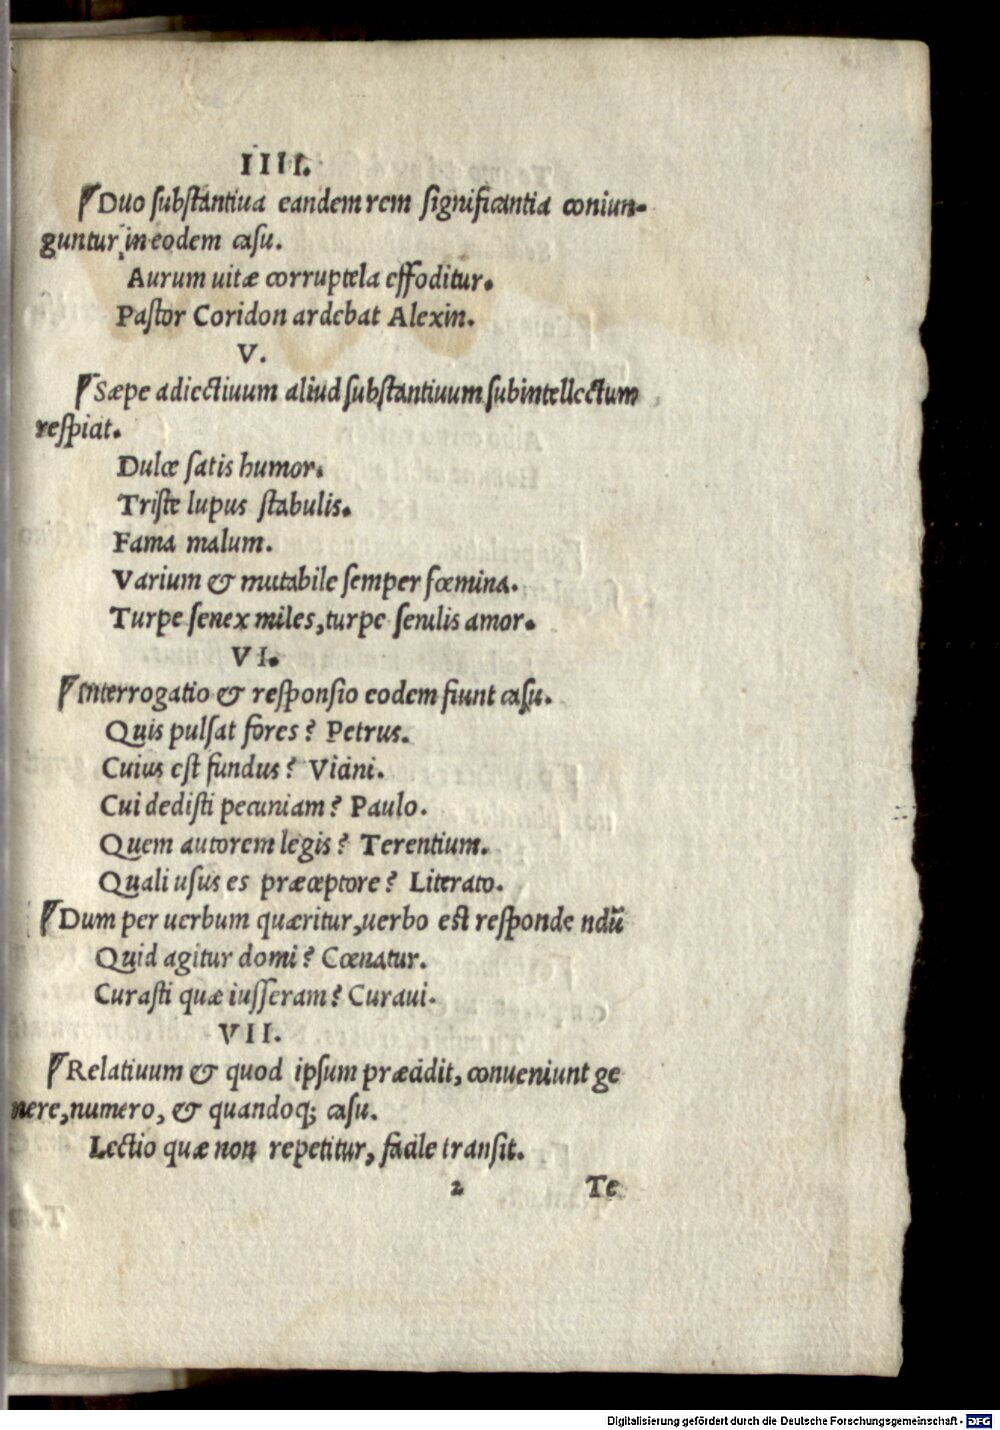 IIII.
¶Duo substantiua eandem rem significantia coniun-
guntur in eodem casu.
Aurum uitæ corruptela effoditur.
Pastor Coridon ardebat Alexin.
V.
¶Sæpe adiectiuum aliud substantiuum subintellectum
respiciat.
Dulce satis humor.
Triste lupus stabulis.
Fama malum.
Varium & mutabile semper fœmina.
Turpe senex miles, turpe senilis amor.
VI.
¶Interrogatio & responsio eodem fiunt casu.
Quis pulsat fores? Petrus.
Cuius est fundus? Viani.
Cui dedisti pecuniam? Paulo.
Quem autorem legis? Terentium.
Quali usus es præceptore? Literato.
¶Dum per uerbum quæritur, uerbo est respondendū
Quid agitur domi? Cœnatur.
Curasti quæ iusseram? Curaui.
VII.
¶Relatiuum & quod ipsum præcidit, conueniunt ge
nere, numero, & quandoq; casu.
Lectio quæ non repetitur, facile transit.
2 Te
Digitalisierung gefördert durch die Deutsche Forschungsgemeinschaft - DFG